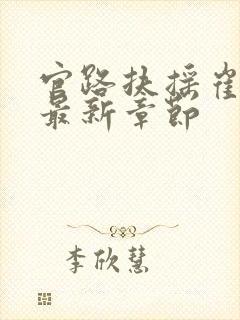 官路扶摇崔
最新章节
李欣慧